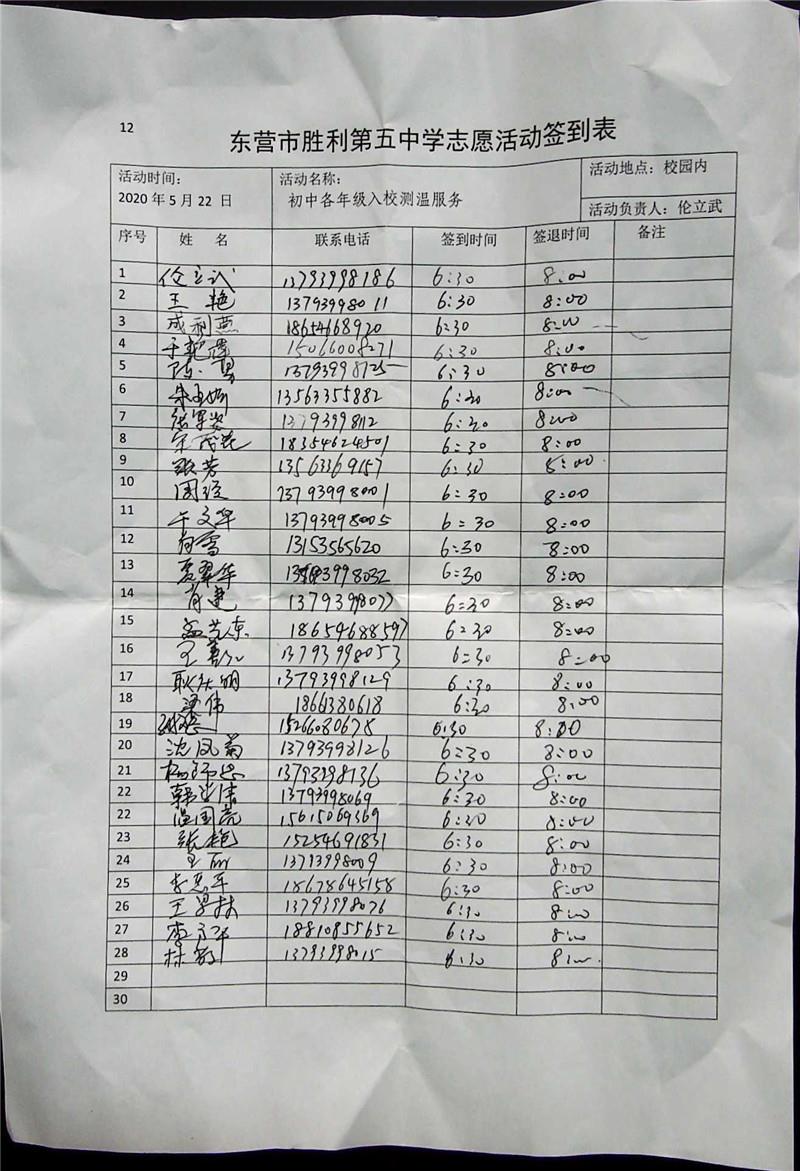 12
东营市胜利第五中学志愿活动签到表
活动时间： 活动名称： 活动地点：校园内
2020年5月22日 初中各年级入校测温服务
活动负责人：伦立武
序号 姓 名 联系电话 签到时间 签退时间 备注
1 伦立武 13793998186 6:30 8:00
2 王艳 13793998011 6:30 8:00
3 成利燕 18654668920 6:30 8:00
4 15066008271 6:30 8:00
5 陈勇 13793998125 6:30 8:00
6 13563355882 6:30 8:00
7 13793998112 6:30 8:00
8 18354624501 6:30 8:00
9 13563369157 6:30 8:00
10 周琼 13793998001 6:30 8:00
11 于文华 13793998005 6:30 8:00
12 13153565620 6:30 8:00
13 贾翠华 6:30 8:00
14 肖建 13793998077 6:30 8:00
15 孟兰东 18654688597 6:30 8:00
16 13793998053 6:30 8:00
17 13793998129 6:30 8:00
18 梁伟 1866380618 6:30 8:00
19 15266080678 6:30 8:00
20 沈凤菊 13793998126 6:30 8:00
21 6:30 8:00
22 13793998069 6:30 8:00
22 温国亮 15615069369 6:30 8:00
23 张艳 15254691831 6:30 8:00
24 王丽 13793998009 6:30 8:00
25 18678645158 6:30 8:00
26 13793998076 6:30 8:00
27 18810955652 6:30 8:00
28 林敏 13793998015 6:30 8:00
29
30